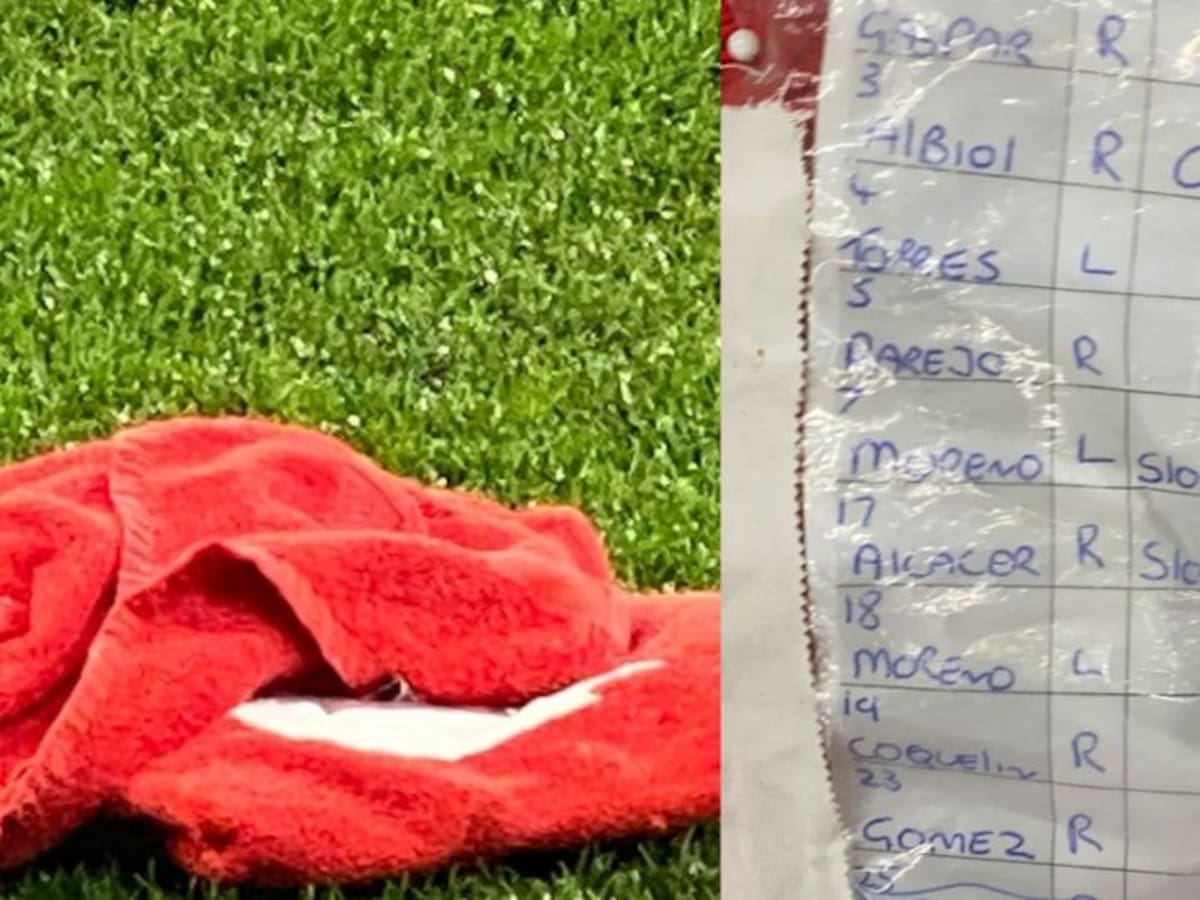 GASPAR R
3
AlBiol R
4
TORRES L
5
PAREJO R
7
MORENO L Slo
17
AlCACER R Slo
18
MORENO L
19
COQUELIN R
23
GOMEZ R
25